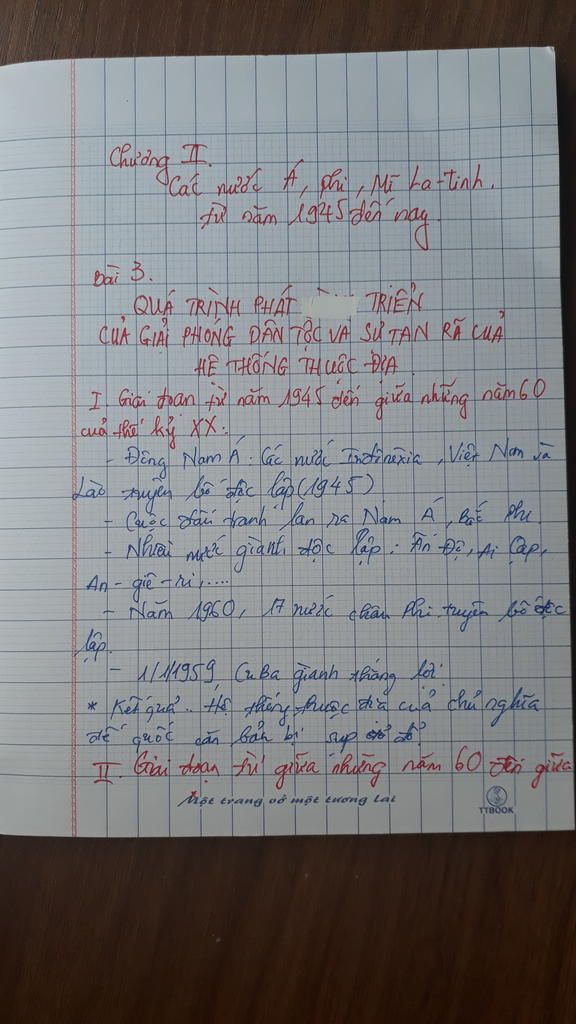 Chương II.
Các nước Á, phi, Mĩ La-tinh.
từ năm 1945 đến nay.
Bài 3.
QUÁ TRÌNH PHÁT TRIỂN
CỦA GIẢI PHÓNG DÂN TỘC VA SỰ TAN RÃ CUẢ
HỆ THỐNG THUỘC ĐỊA.
I Giai đoạn từ năm 1945 đến giữa những năm 60
cuả thế kỷ XX:
- Đông Nam Á: Các nước Inđinêxia, Việt Nam và
Lào truyên bố độc lập (1945)
- Cuộc đấu tranh lan ra Nam Á, Bắc Phi.
- Nhiều nước giành độc lập: Ấn Độ, Ai Cập,
An-giê-ri,....
- Năm 1960, 17 nước châu Phi truyên bố độc
lập.
- 1/11959 CuBa giành thắng lợi
* Kết quả: Hệ thống thuộc địa cuả chủ nghĩa
đế quốc căn bản bị sụp đổ
II. Giai đoạn từ giữa những năm 60 đến giữa
Một trang vở một tương lai
TTBOOK